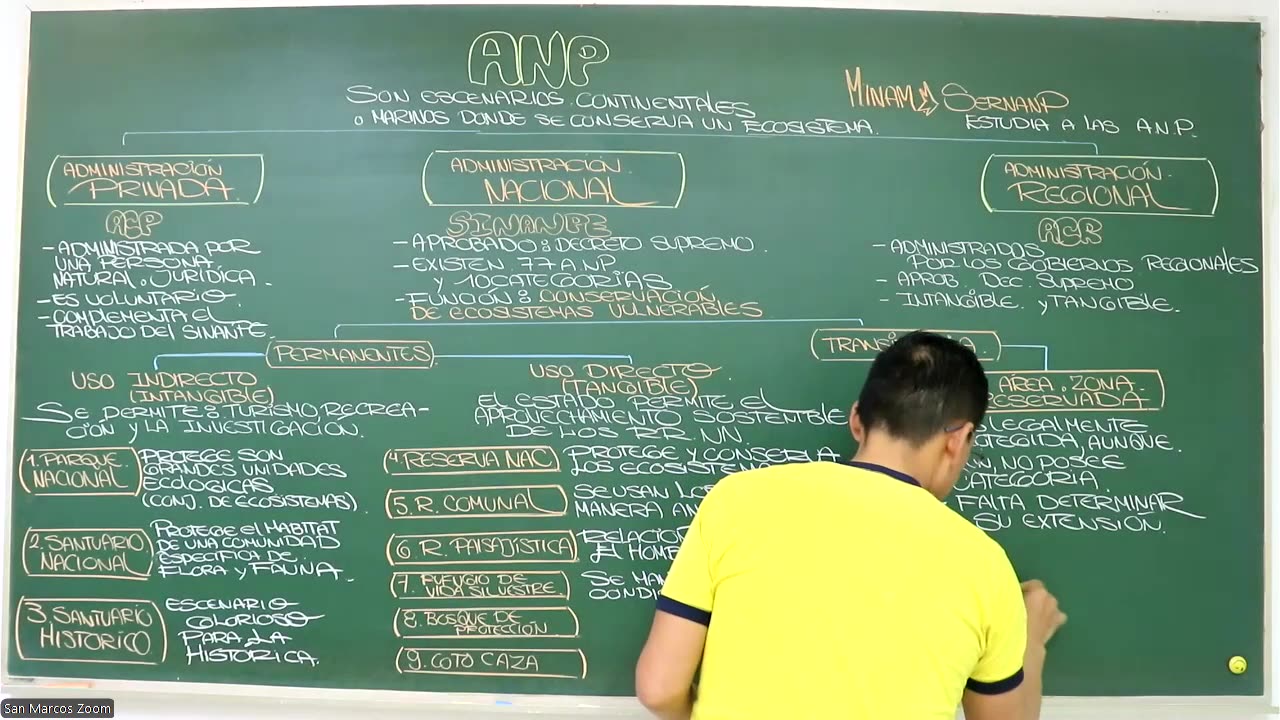 ANP
SON ESCENARIOS CONTINENTALES
O MARINOS DONDE SE CONSERVA UN ECOSISTEMA.
MINAM SERNANP
ESTUDIA A LAS A.N.P.
ADMINISTRACIÓN
PRIVADA
ACP
- ADMINISTRADA POR
UNA PERSONA
NATURAL o JURÍDICA.
- ES VOLUNTARIO.
- COMPLEMENTA EL
TRABAJO DEL SINANPE.
ADMINISTRACIÓN
NACIONAL
SINANPE
- APROBADO: DECRETO SUPREMO.
- EXISTEN 77 ANP
y 10 CATEGORÍAS
- FUNCIÓN: CONSERVACIÓN
DE ECOSISTEMAS VULNERABLES
ADMINISTRACIÓN
REGIONAL
ACR
- ADMINISTRADOS
POR LOS GOBIERNOS REGIONALES
- APROB. DEC. SUPREMO
- INTANGIBLE y TANGIBLE.
PERMANENTES
USO INDIRECTO
(INTANGIBLE)
SE PERMITE: TURISMO, RECREA-
CIÓN y LA INVESTIGACIÓN.
1. PARQUE
NACIONAL
PROTEGE SON
GRANDES UNIDADES
ECOLOGICAS
(CONJ. DE ECOSISTEMAS).
2. SANTUARIO
NACIONAL
PROTEGE EL HABITAT
DE UNA COMUNIDAD
ESPECIFICA DE
FLORA y FAUNA.
3. SANTUARIO
HISTORICO
ESCENARIO
GLORIOSO
PARA LA
HISTORICA.
USO DIRECTO
(TANGIBLE)
EL ESTADO PERMITE EL
APROVECHAMIENTO SOSTENIBLE
DE LOS RR.NN.
4. RESERVA NAC
PROTEGE Y CONSERVA
LOS
5. R. COMUNAL
SE USAN
MANERA
6. R. PAISAJÍSTICA
EL
7. RUFUGIO DE
VIDA SILVESTRE
SE
8. BOSQUE DE
PROTECCIÓN
9. COTO CAZA
ÁREA o ZONA
RESERVADA
LEGALMENTE
AUNQUE
NO POSEE
CATEGORÍA.
FALTA DETERMINAR
SU EXTENSIÓN.
San Marcos Zoom